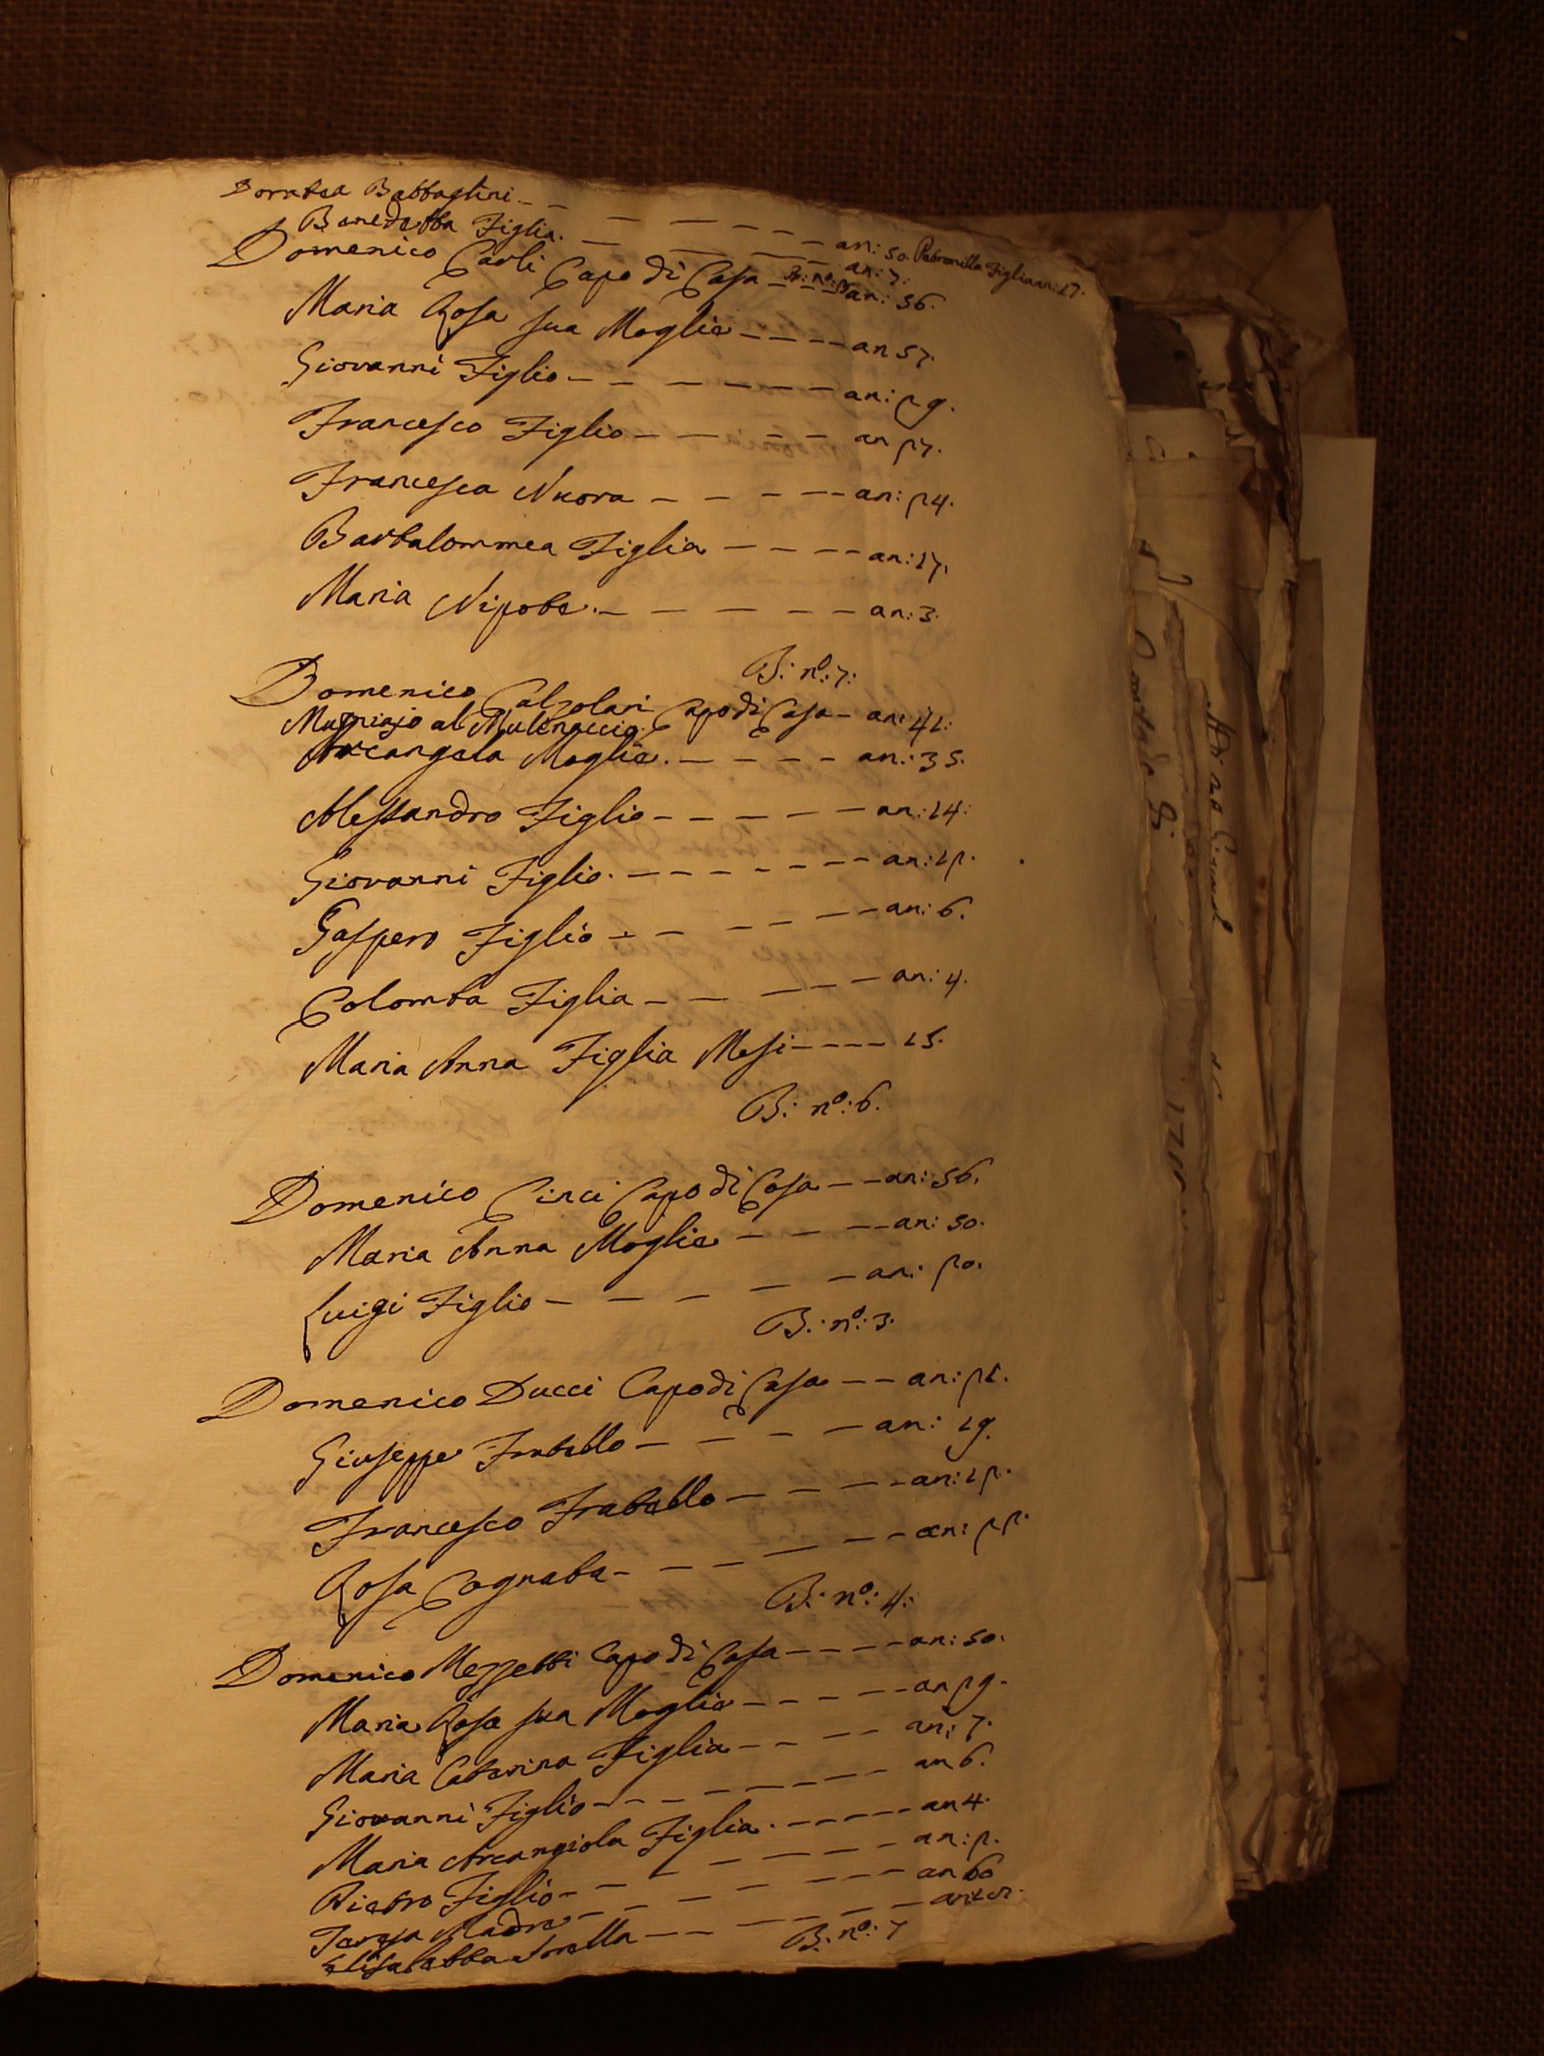 Doratea Battaglini. – – – – – – an: 50. Petronilla Figlia an: 17.
Benedetta Figlia. – – – – – an: 7:
B: nº: 3
Domenico Carli Capo di Casa – – – an: 56.
Maria Rosa sua Moglie – – – – an 57.
Giovanni Figlio – – – – – – an: 29.
Francesco Figlio – – – – an 27.
Francesca Nuora – – – – – an: 24.
Bartalommea Figlia – – – – an: 17.
Maria Nipote. – – – – – an: 3.
B: nº: 7:
Domenico Calzolari
Mugniajo al Mulinaccio. Capo di Casa – an: 41:
Arcangela Moglie. – – – – an: 35.
Alessandro Figlio – – – – – an: 14:
Giovanni Figlio. – – – – – – an: 12.
Gaspero Figlio – – – – – an: 6.
Colomba Figlia – – – – – an: 4.
Maria Anna Figlia Mesi – – – – 15.
B: nº: 6.
Domenico Cinci Capo di Casa – – an: 56.
Maria Anna Moglie – – – – an: 50.
Luigi Figlio – – – – – an: 20.
B: nº: 3.
Domenico Ducci Capo di Casa – – an: 21.
Giuseppe Fratello – – – – an: 19.
Francesco Fratello – – – – an: 12.
Rosa Cognata – – – – – an: 22.
B: nº: 4:
Domenico Mezzetti Capo di Casa – – – – an: 50.
Maria Rosa sua Moglie – – – – – an 29.
Maria Caterina Figlia – – – – an: 7.
Giovanni Figlio – – – – – – – an 6.
Maria Arcangiola Figlia. – – – – – an 4.
Pietro Figlio – – – – – – an: 2.
Teresa Madre – – – – – – an 60
Elisabetta Sorella – – – – –
B: nº: 7